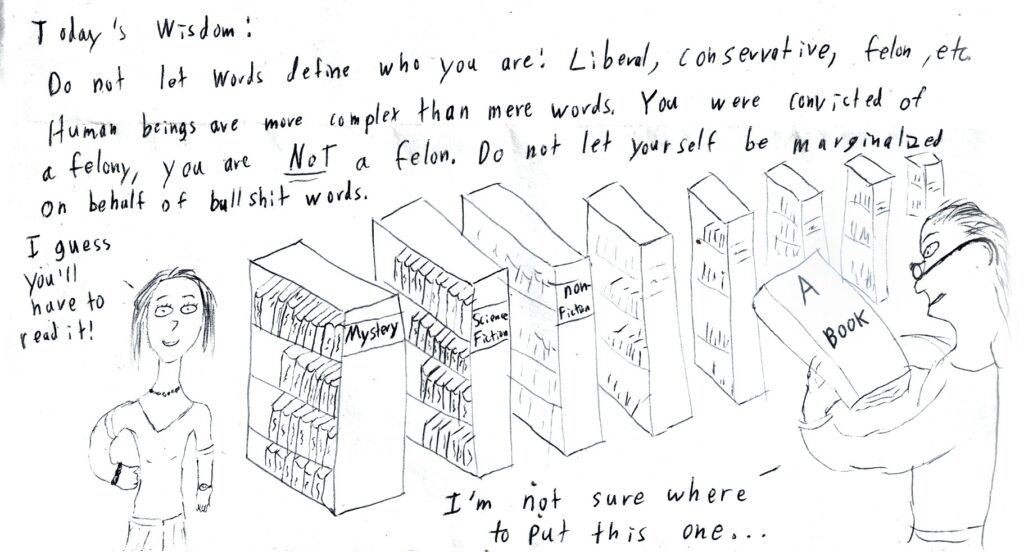 Today's Wisdom:
Do not let words define who you are! Liberal, conservative, felon, etc.
Human beings are more complex than mere words. You were convicted of
a felony, you are NOT a felon. Do not let yourself be marginalized
on behalf of bullshit words.
I guess
you'll
have to
read it!
Mystery
Science
Fiction
non-
Fiction
A
BOOK
I'm not sure where
to put this one...